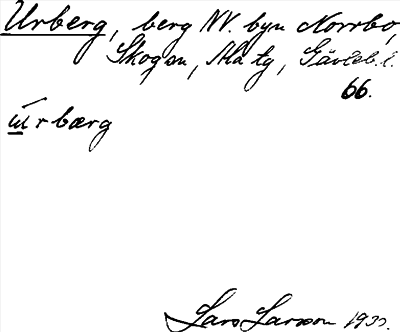 Urberg, berg NV. byn Norrbo,
Skogsn, Ala tg, Gävleb. l.
66.
ú̲rbærg
Lars Larsson 1933.